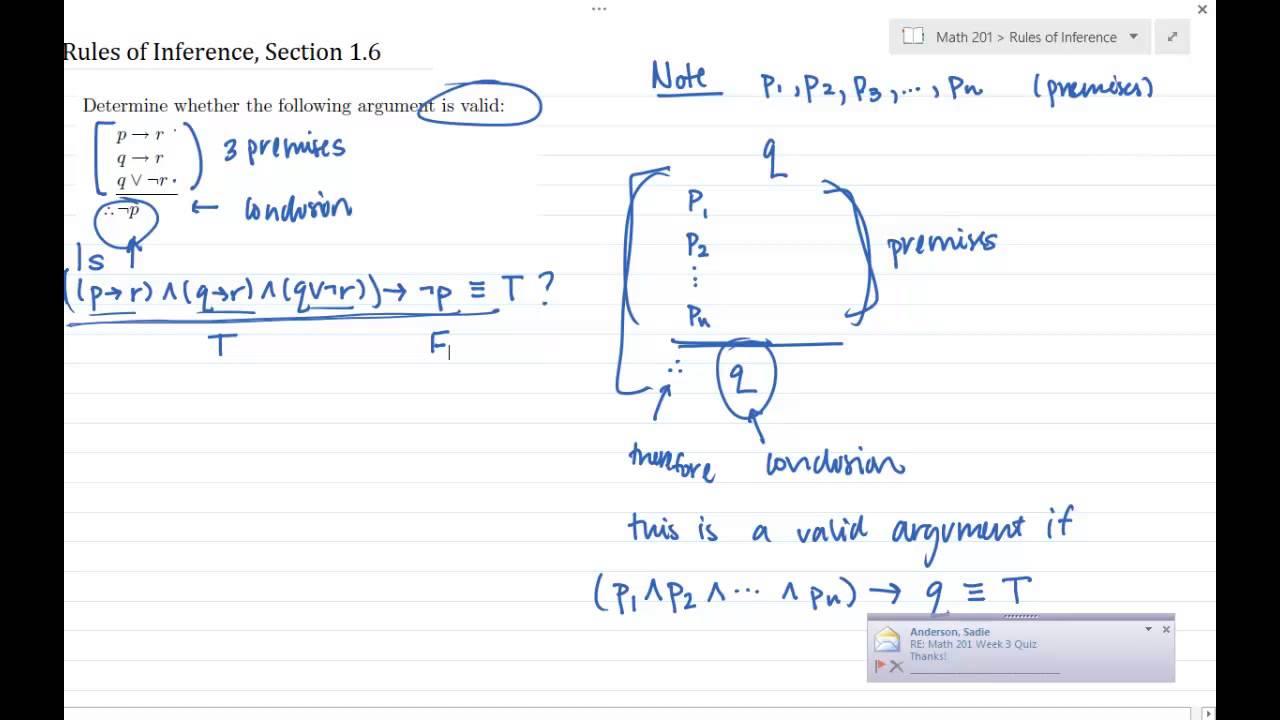 Rules of Inference, Section 1.6
Math 201 > Rules of Inference
Determine whether the following argument is valid:
p → r
q → r
q ∨ ¬r
∴ ¬p
3 premises
← conclusion
Is
((p→r) ∧ (q→r) ∧ (q∨¬r)) → ¬p ≡ T ?
T F
Note p₁, p₂, p₃, ..., pₙ (premises)
q
P₁
P₂
⋮
Pₙ
premises
∴ q
therefore conclusion
this is a valid argument if
(p₁ ∧ p₂ ∧ ⋯ ∧ pₙ) → q ≡ T
Anderson, Sadie
RE: Math 201 Week 3 Quiz
Thanks!